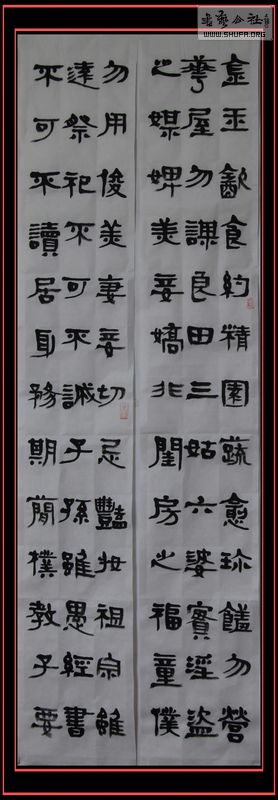 书艺公社
WWW.SHUFA.ORG
金玉飲食約精園蔬愈珍饈勿營
華屋勿謀良田三姑六婆實淫盜
之媒婢美妾嬌非閨房之福童僕
勿用俊美妻妾切忌豔妝祖宗雖
遠祭祀不可不誠子孫雖愚經書
不可不讀居身務期簡樸教子要